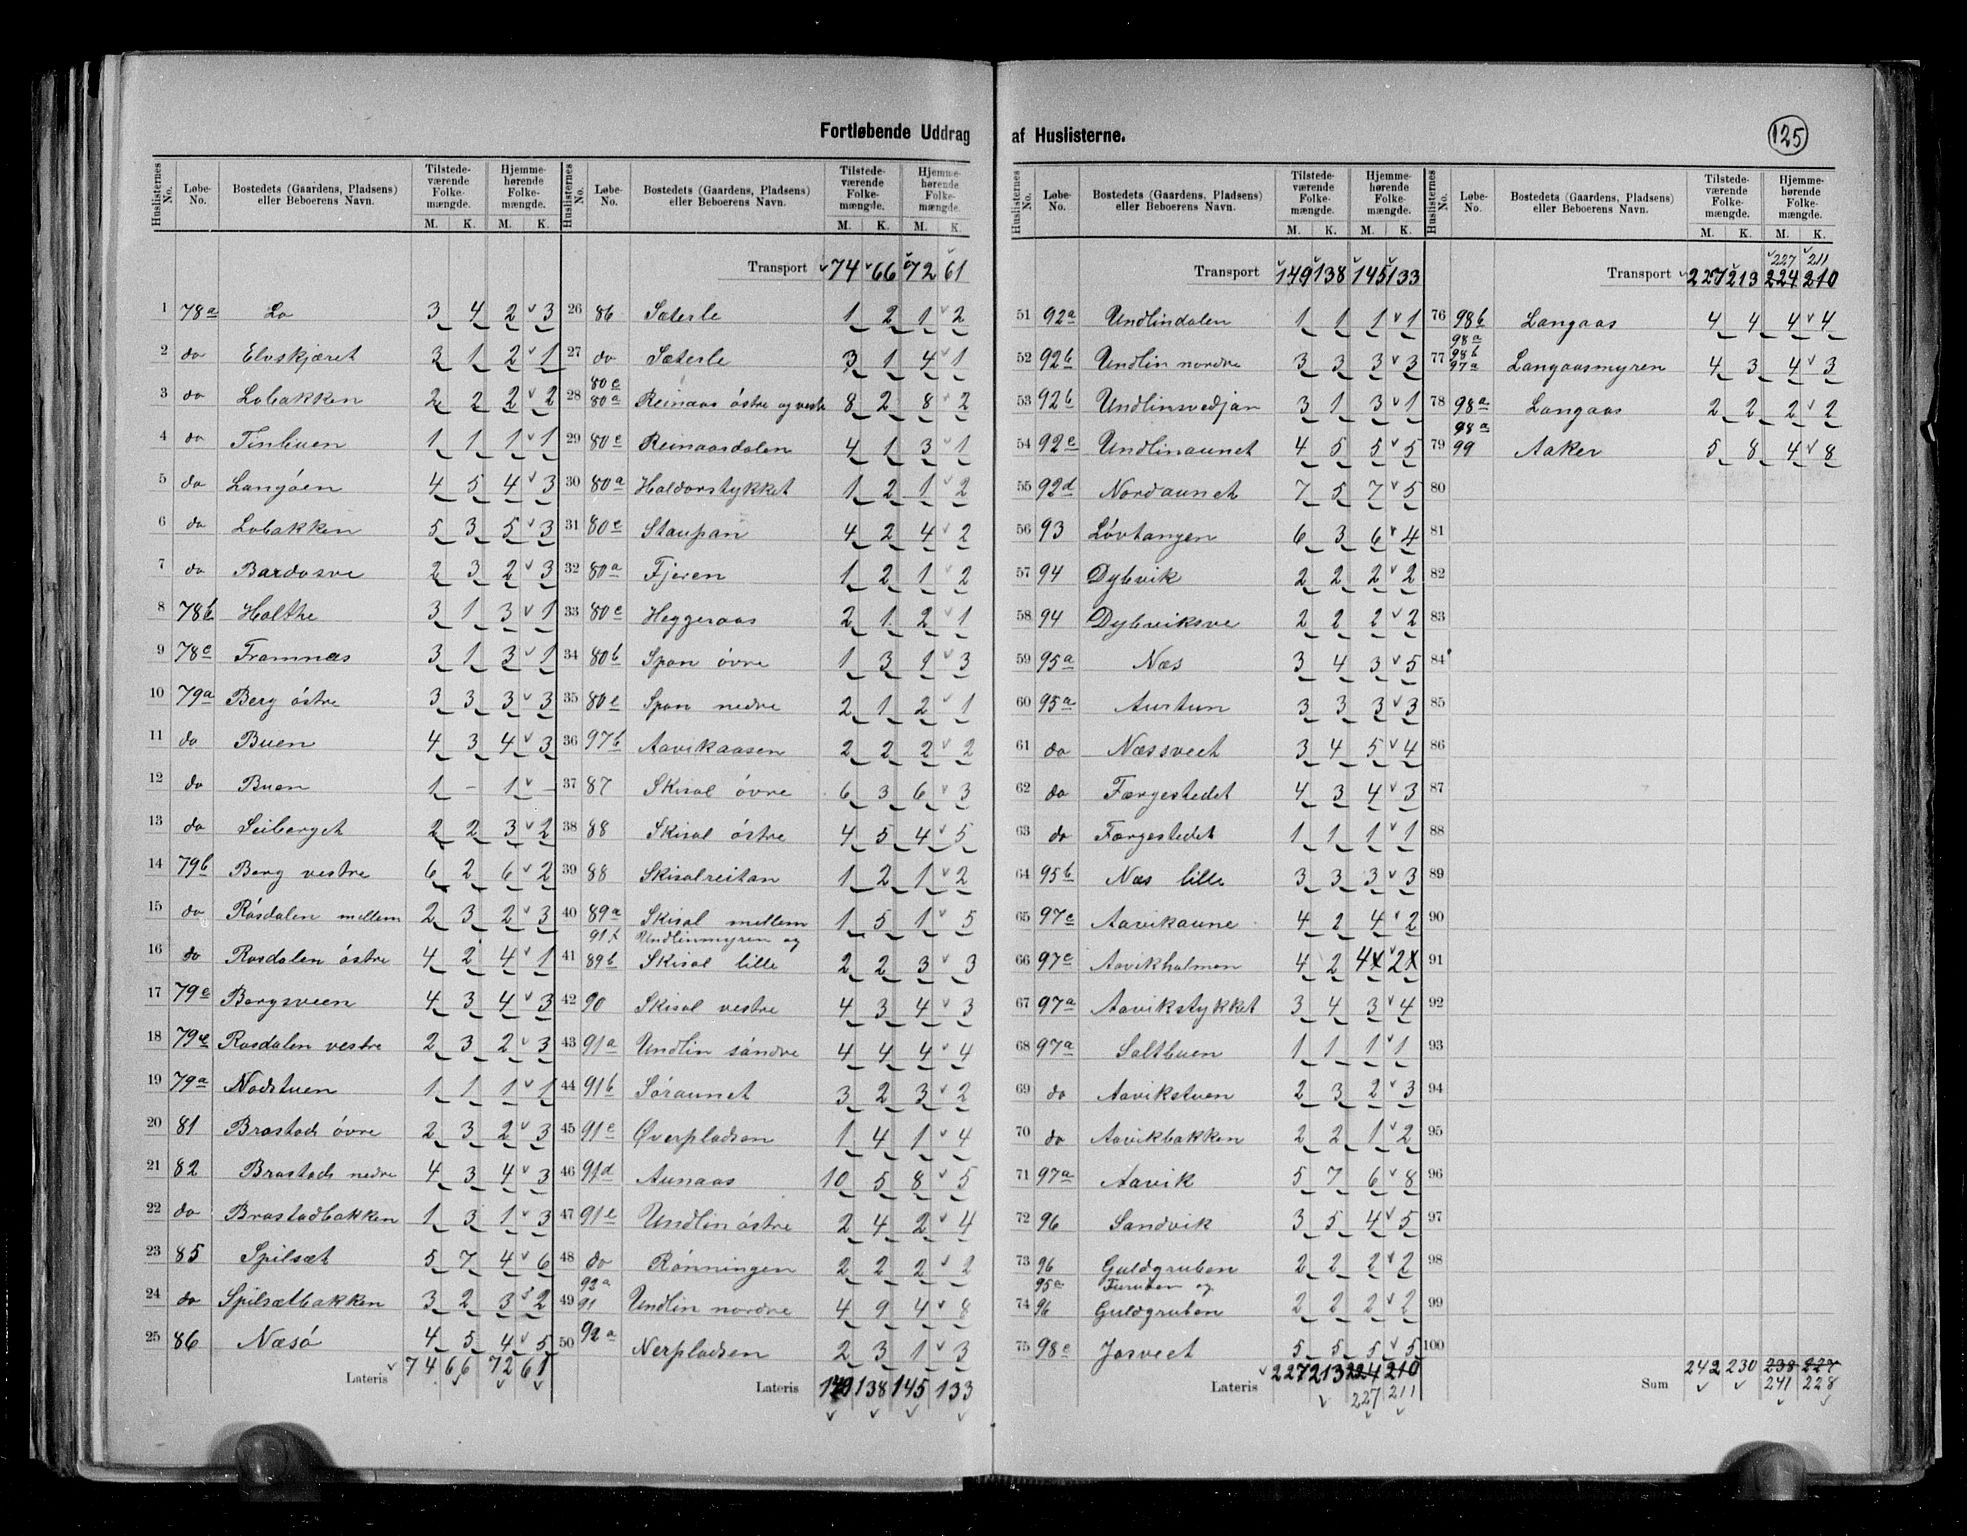 Fortløbende Uddrag af Huslisterne.
125
Huslisternes No. Løbe-No. Bostedets (Gaardens, Pladsens) eller Beboerens Navn. Tilstedeværende Folkemængde. M. K. Hjemmehørende Folkemængde. M. K.
1 78a Lo 3 4 2 3
2 do Elvskjæret 3 1 2 1
3 do Lobakken 2 2 2 2
4 do Tinbuen 1 1 1 1
5 do Langøen 4 5 4 3
6 do Lobakken 5 3 5 3
7 do Bardosve 2 3 2 3
8 78b Holthe 3 1 3 1
9 78c Framnæs 3 1 3 1
10 79a Berg östre 3 3 3 3
11 do Buen 4 3 4 3
12 do Buen 1 - 1 -
13 do Seiberget 2 2 3 2
14 79b Berg vestre 6 2 6 2
15 do Røsdalen mellem 2 3 2 3
16 do Rosdalen östre 4 2 4 1
17 79c Bergsveen 4 3 4 3
18 79c Rosdalen vestre 2 3 2 3
19 79a Nodstuen 1 1 1 1
20 81 Brastad övre 2 3 2 3
21 82 Brastad nedre 4 3 4 3
22 do Brastadbakken 1 3 1 3
23 85 Spilsæt 5 7 4 6
24 do Spilsætbakken 3 2 3 2
25 86 Næsö 4 5 4 5
Lateris 74 66 72 61
Huslisternes No. Løbe-No. Bostedets (Gaardens, Pladsens) eller Beboerens Navn. Tilstedeværende Folkemængde. M. K. Hjemmehørende Folkemængde. M. K.
Transport 74 66 72 61
26 86 Sæterle 1 2 1 2
27 do Sæterle 3 1 4 1
28 80c 80a Reinaas östre og vestre 8 2 8 2
29 80c Reinaasdalen 4 1 3 1
30 80a Haldorstykket 1 2 1 2
31 80c Staupan 4 2 4 2
32 80a Fjeren 1 2 1 2
33 80c Heggeraas 2 1 2 1
34 80b Span övre 1 3 1 3
35 80c Span nedre 2 1 2 1
36 97b Aavikaasen 2 2 2 2
37 87 Skisal övre 6 3 6 3
38 88 Skisal östre 4 5 4 5
39 88 Skisalreitan 1 2 1 2
40 89a Skisal mellem 1 5 1 5
91f Undlinmyren og
41 89b Skisal lille 2 2 3 3
42 90 Skisal vestre 4 3 4 3
43 91a Undlin söndre 4 4 4 4
44 91b Søraunet 3 2 3 2
45 91c Øverpladsen 1 4 1 4
46 91d Aunaas 10 5 8 5
47 91e Undlin östre 2 4 2 4
48 do Rønningen 2 2 2 2
49 92a 91 Undlin nordre 4 9 4 8
50 92a Nerpladsen 2 3 1 3
Lateris 149 138 145 133
Huslisternes No. Løbe-No. Bostedets (Gaardens, Pladsens) eller Beboerens Navn. Tilstedeværende Folkemængde. M. K. Hjemmehørende Folkemængde. M. K.
Transport 149 138 145 133
51 92a Undlindalen 1 1 1 1
52 92b Undlin nordre 3 3 3 3
53 92b Undlinsvedjan 3 1 3 1
54 92c Undlinaunet 4 5 5 5
55 92d Nordaunet 7 5 7 5
56 93 Løvtangen 6 3 6 4
57 94 Dybvik 2 2 2 2
58 94 Dybviksve 2 2 2 2
59 95a Næs 3 4 3 5
60 95a Aurtun 3 3 3 3
61 do Næssveet 3 4 5 4
62 do Færgestedet 4 3 4 3
63 do Færgestedet 1 1 1 1
64 95b Næs lille 3 3 3 3
65 97c Aavikaune 4 2 4 2
66 97c Aavikholmen 4 2 4 2
67 97a Aavikstykket 3 4 3 4
68 97a Saltbuen 1 1 1 1
69 do Aavikstuen 2 3 2 3
70 do Aavikbakken 2 2 1 2
71 97a Aavik 5 7 6 8
72 96 Sandvik 3 5 4 5
73 96 Guldgruben 2 2 2 2
95a Furuben og
74 96 Guldgruben 2 2 2 2
75 98c Josveet 5 5 5 5
Lateris 227 213 224 210
227 211
Huslisternes No. Løbe-No. Bostedets (Gaardens, Pladsens) eller Beboerens Navn. Tilstedeværende Folkemængde. M. K. Hjemmehørende Folkemængde. M. K.
227 211
Transport 227 213 224 210
76 98b Langaas 4 4 4 4
77 98a 98b 97a Langaasmyren 4 3 4 3
78 98a Langaas 2 2 2 2
79 98a 99 Aaker 5 8 4 8
80
81
82
83
84
85
86
87
88
89
90
91
92
93
94
95
96
97
98
99
100
Sum 242 230 238 227
241 228